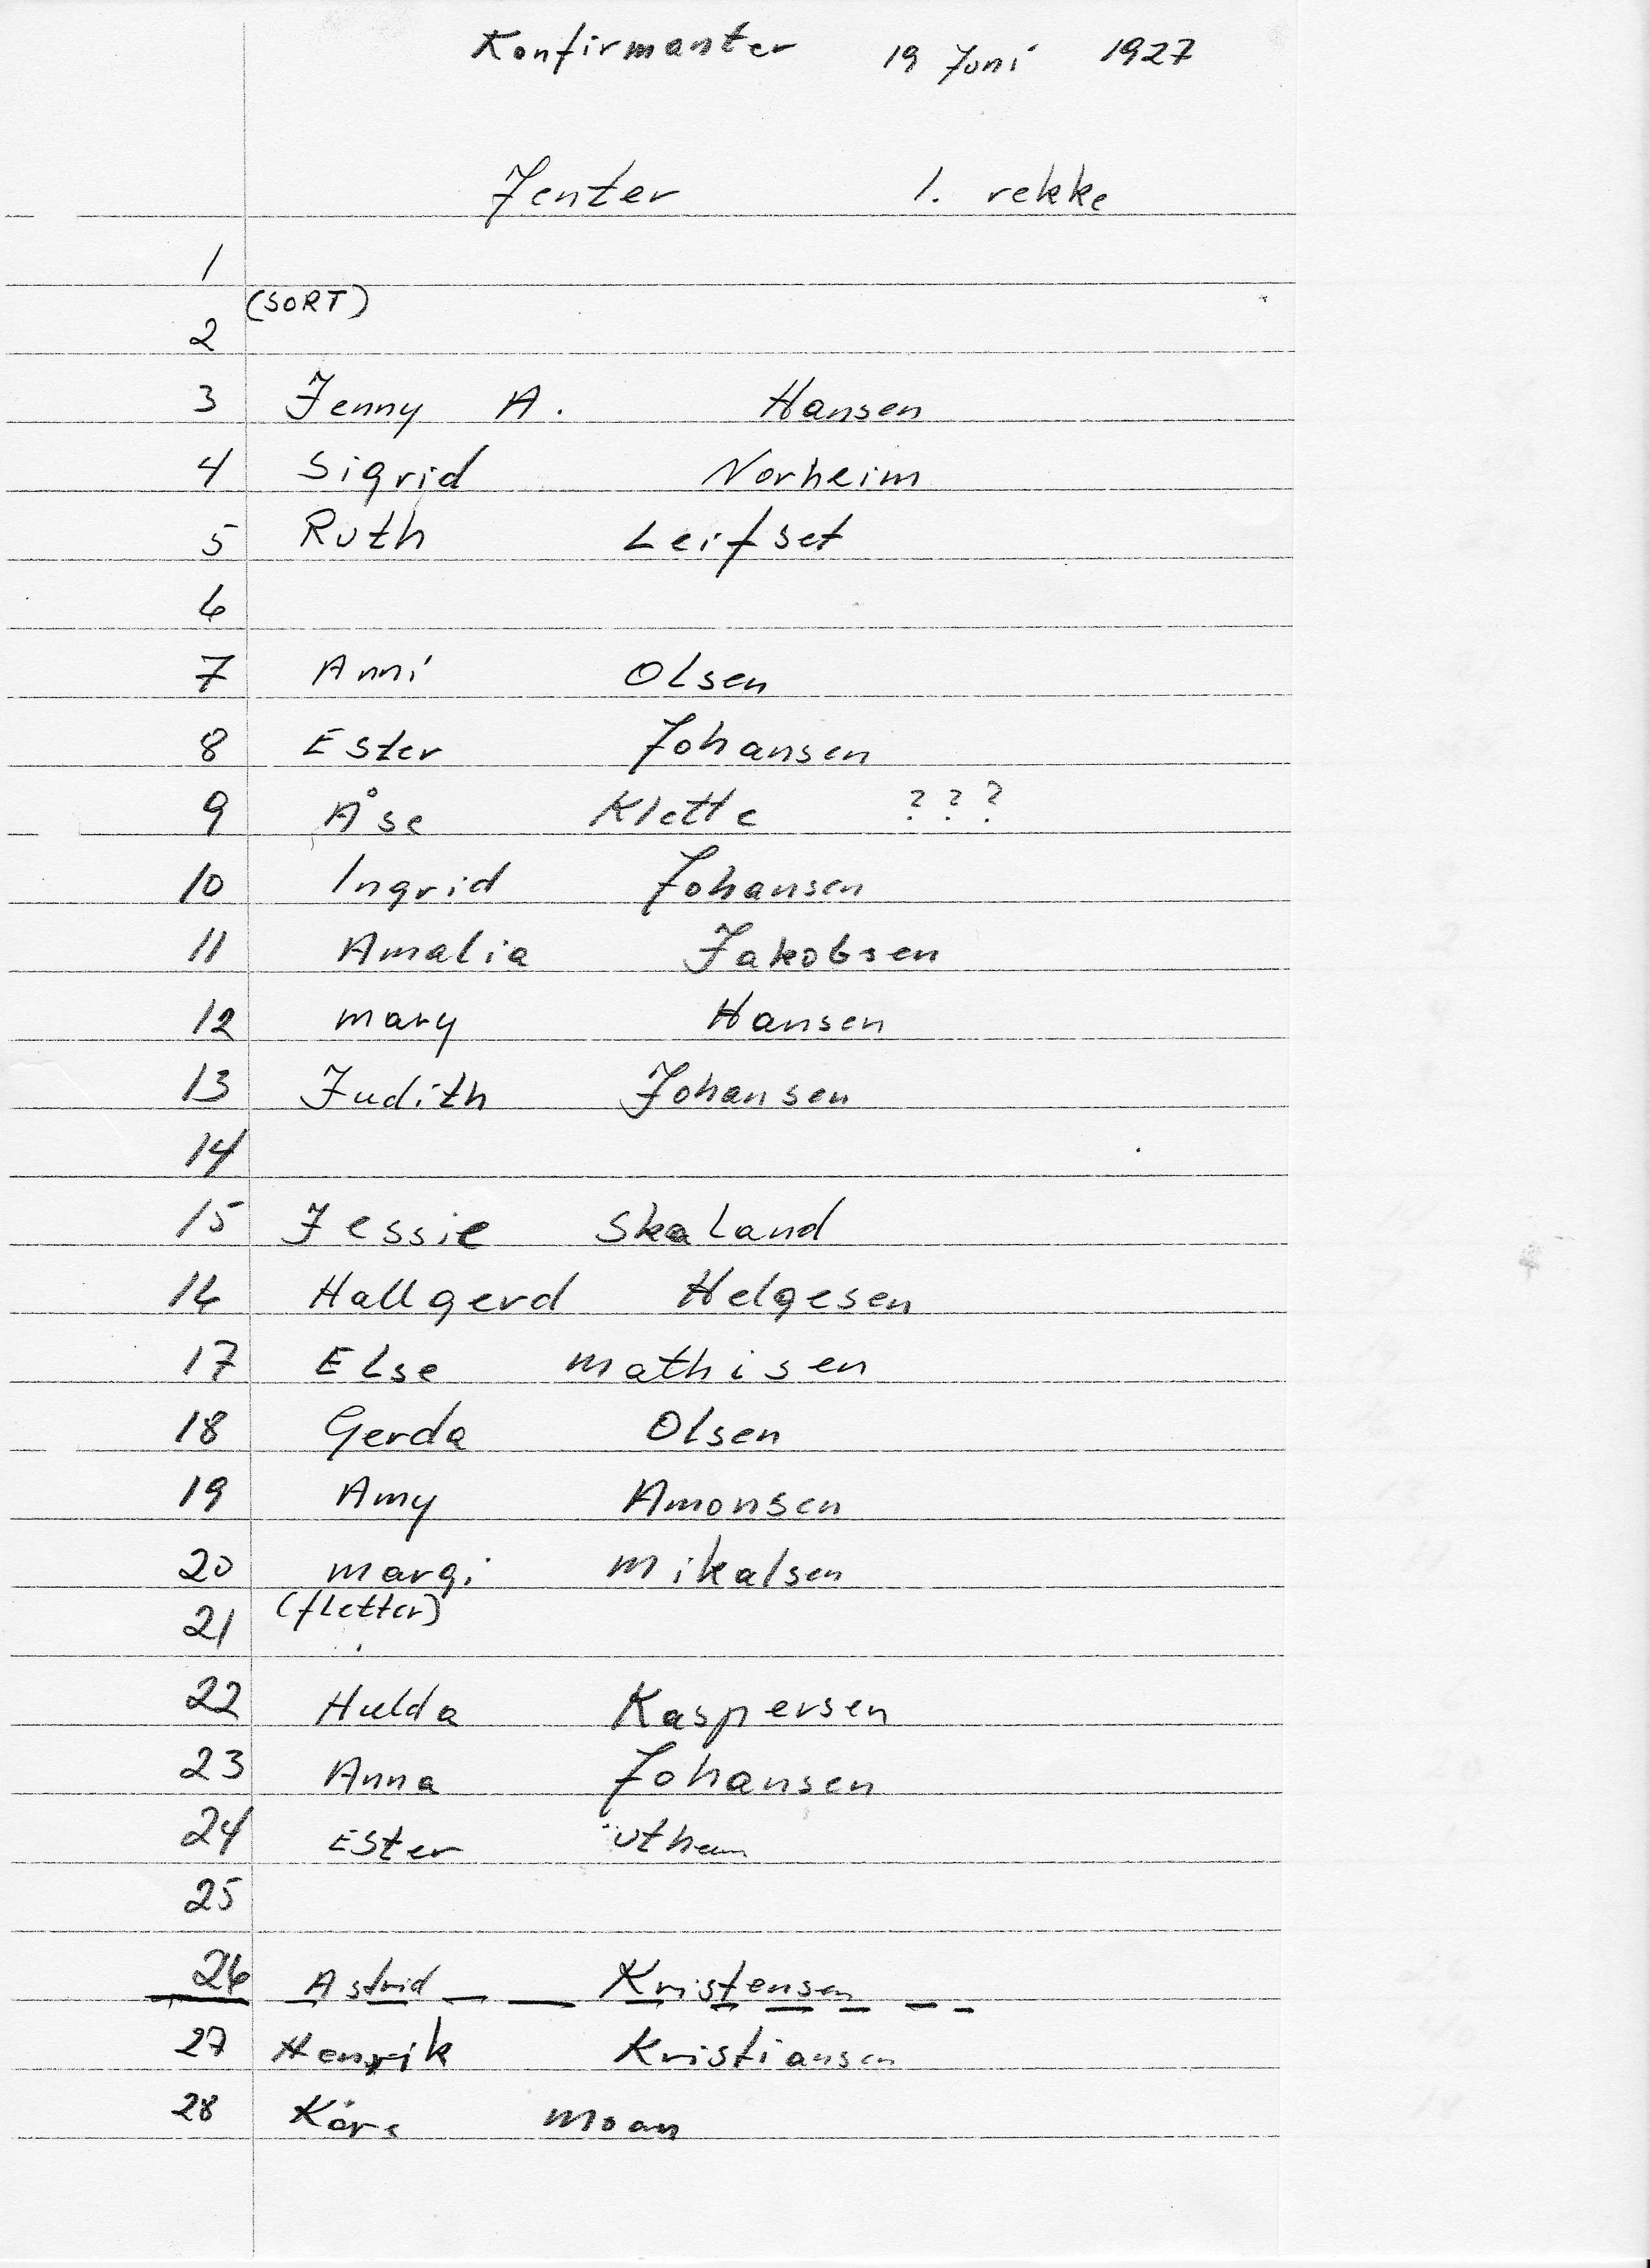 Konfirmanter 19 Juni 1927
Jenter 1. rekke
1
(SORT)
2
3 Jenny A. Hansen
4 Sigrid Norheim
5 Ruth Leifset
6
7 Anni Olsen
8 Ester Johansen
9 Åse Klette ???
10 Ingrid Johansen
11 Amalia Jakobsen
12 Mary Hansen
13 Judith Johansen
14
15 Jessie Skaland
16 Hallgerd Helgesen
17 Else Mathisen
18 Gerda Olsen
19 Amy Amonsen
20 Margi Mikalsen
(fletter)
21
22 Hulda Kaspersen
23 Anna Johansen
24 Ester
25
26 Astrid Kristensen
27 Henrik Kristiansen
28 Kåre Moan